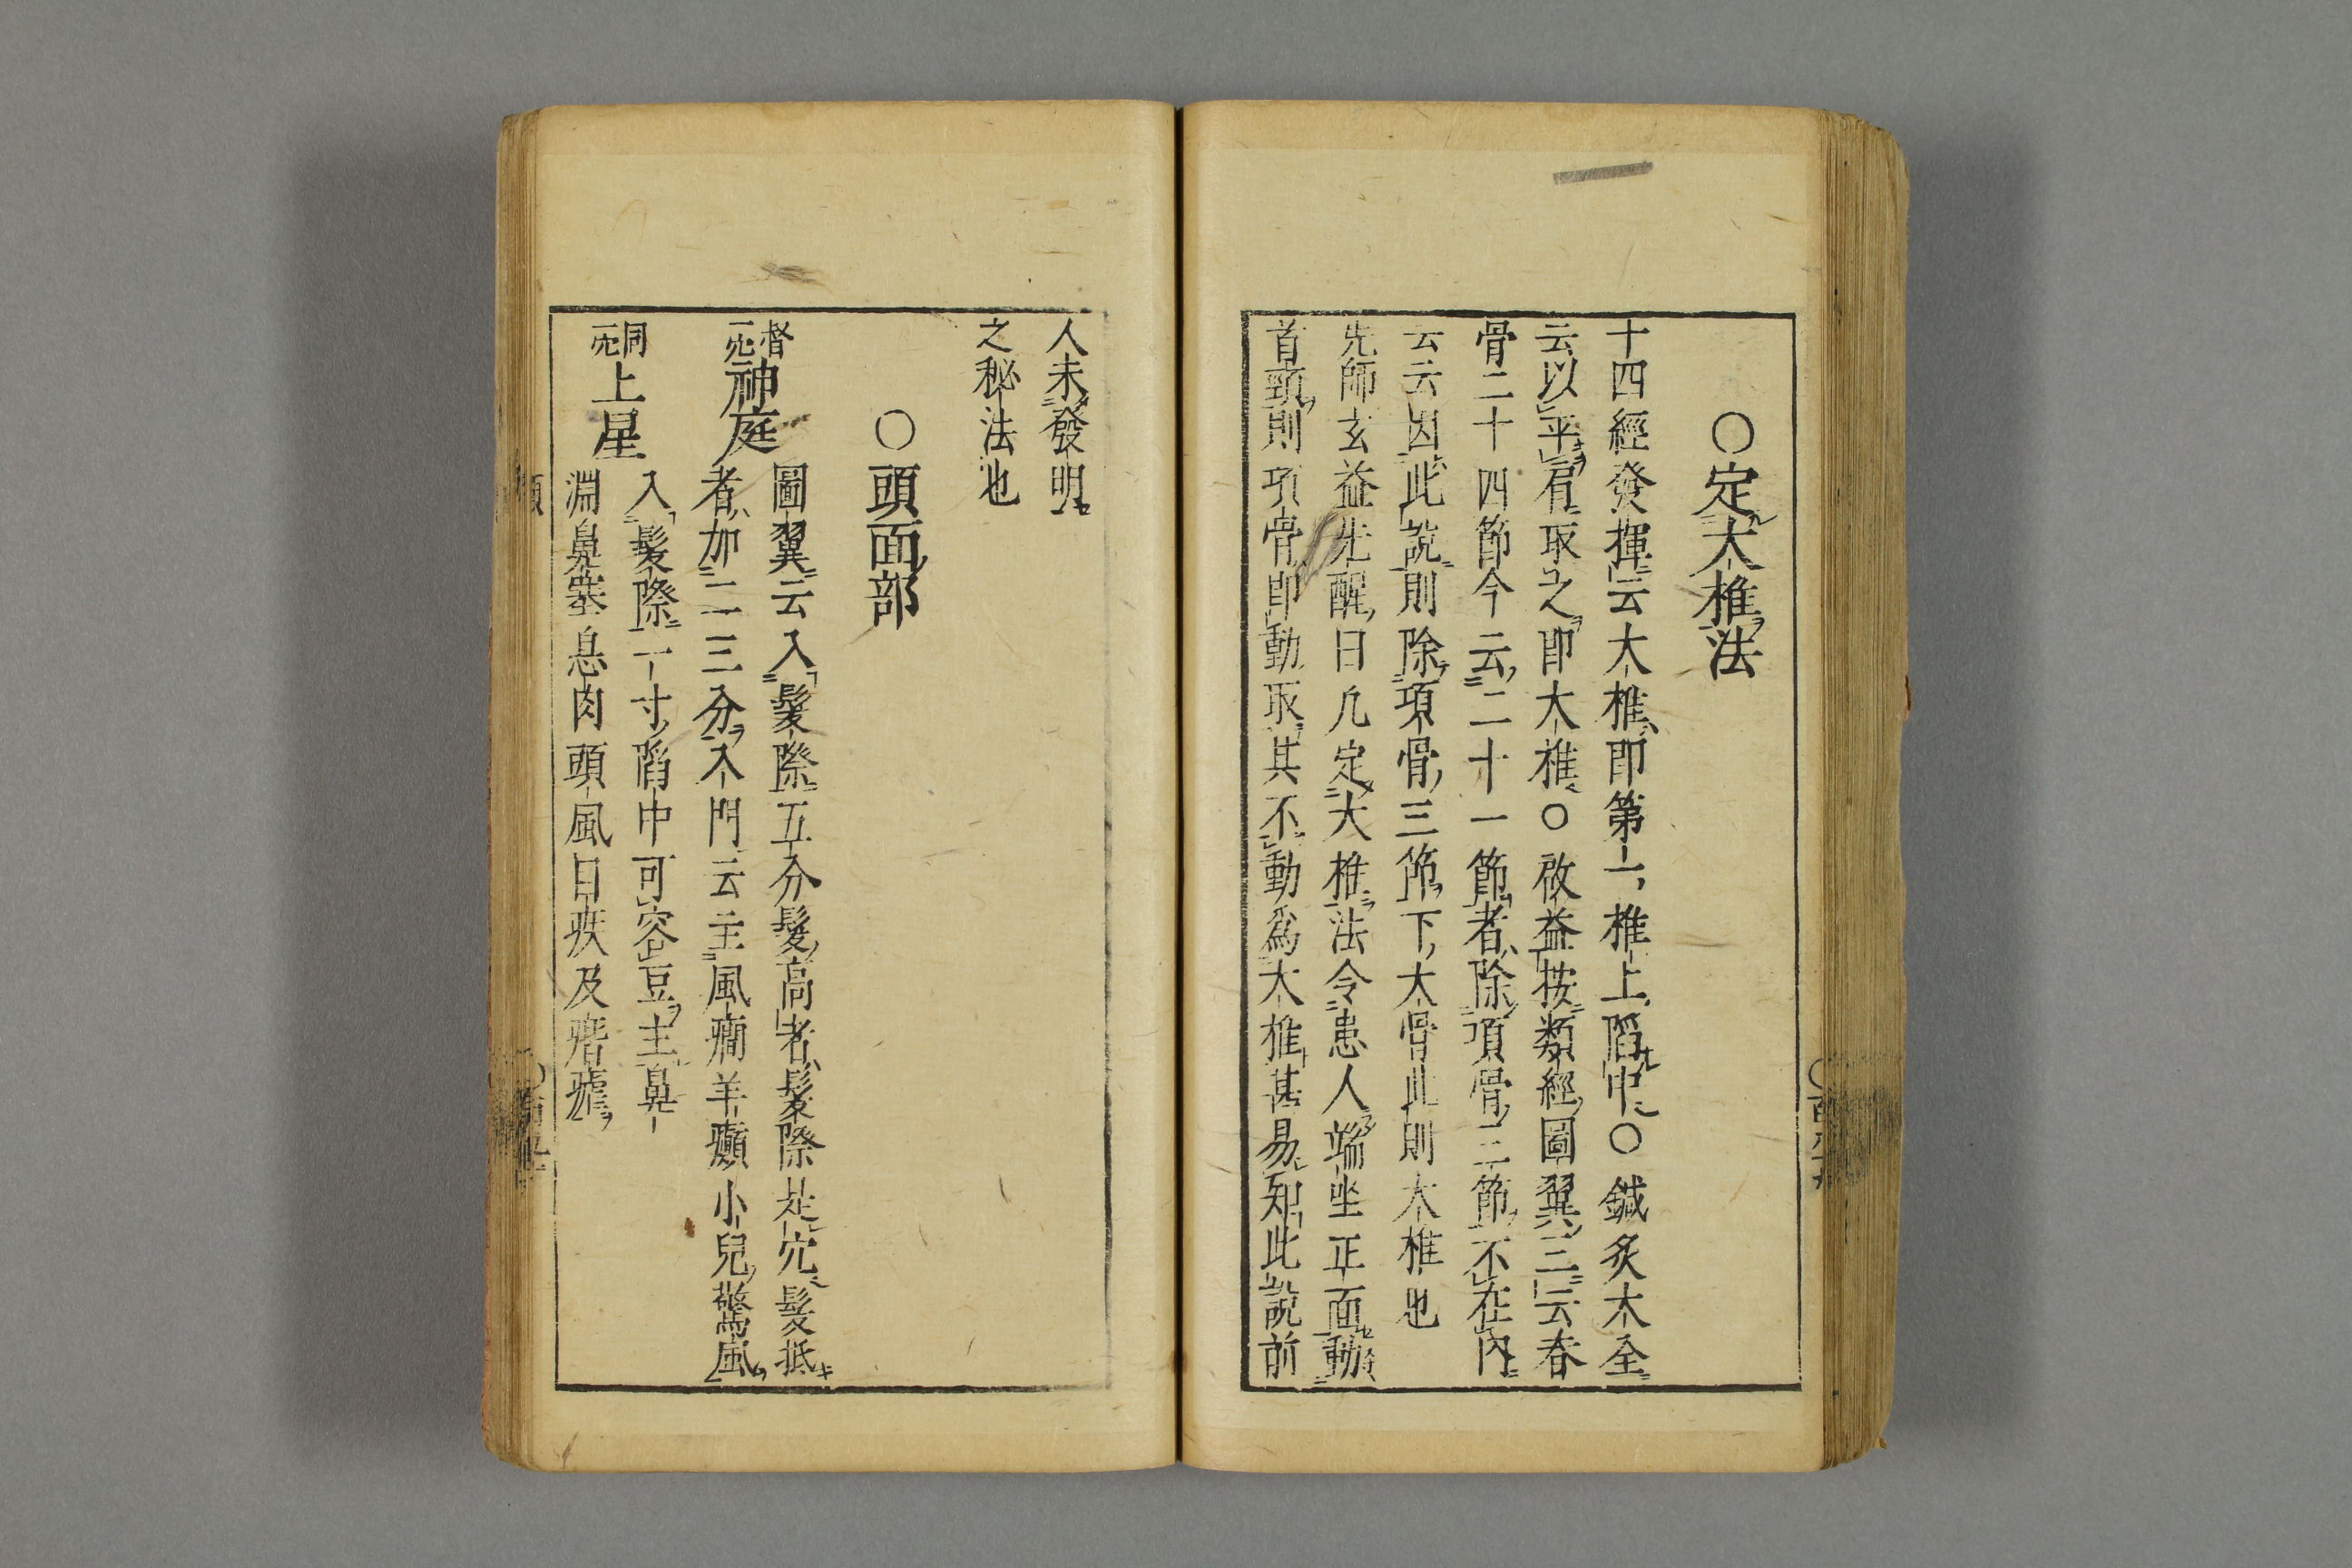 ○定大椎法
十四經發揮云大椎即第一椎上陷中○鍼灸大全
云以平肩取之即大椎○啟益按類經圖翼三云脊
骨二十四節今云二十一節者除項骨三節不在內
云云因此說則除項骨三節下大骨此則大椎也
先師玄益先醒曰凡定大椎法令患人端坐正面動
首頸則項骨即動取其不動爲大椎甚易知此說前
人未發明
之秘法也
○頭面部
督一穴 神庭 圖翼云入髮際五分髮高者髮際是穴髮抵
者加二三分入門云主風癇羊癲小兒驚風
同一穴 上星 入髮際一寸陷中可容豆主鼻
淵鼻塞息肉頭風目疾及痎瘧